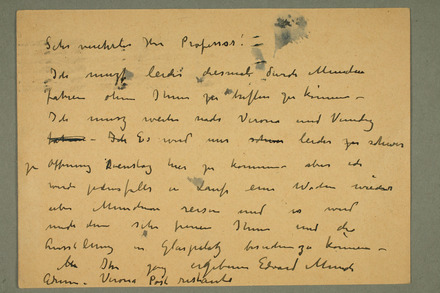 Sehr verehrter Herr Professor!
Ich muss leider diesmal durch München
fahren ohne Ihnen zu treffen zu können –
Ich muss weiter nach Verona und Venedig
Es wird mir leider zu schwer
zu Öffnung Dienstag hier zu kommen – aber ich
werde jedenfalls in Laufe einer Woche wieder
über München reisen und es wird
mich dann sehr freuen Ihnen und die
Ausstellung in Glaspalatz besichtigen zu können –
Ihr ganz ergebener Edvard Munch
Verona Post restante